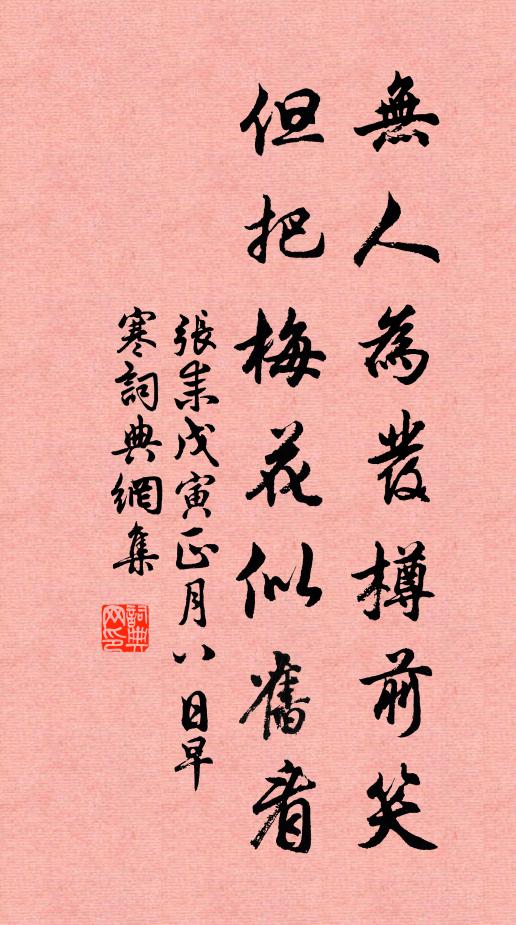 無人為發樽前笑
但把梅花似舊看
張耒戊寅正月八日早
寒詞典網集
詞典網印